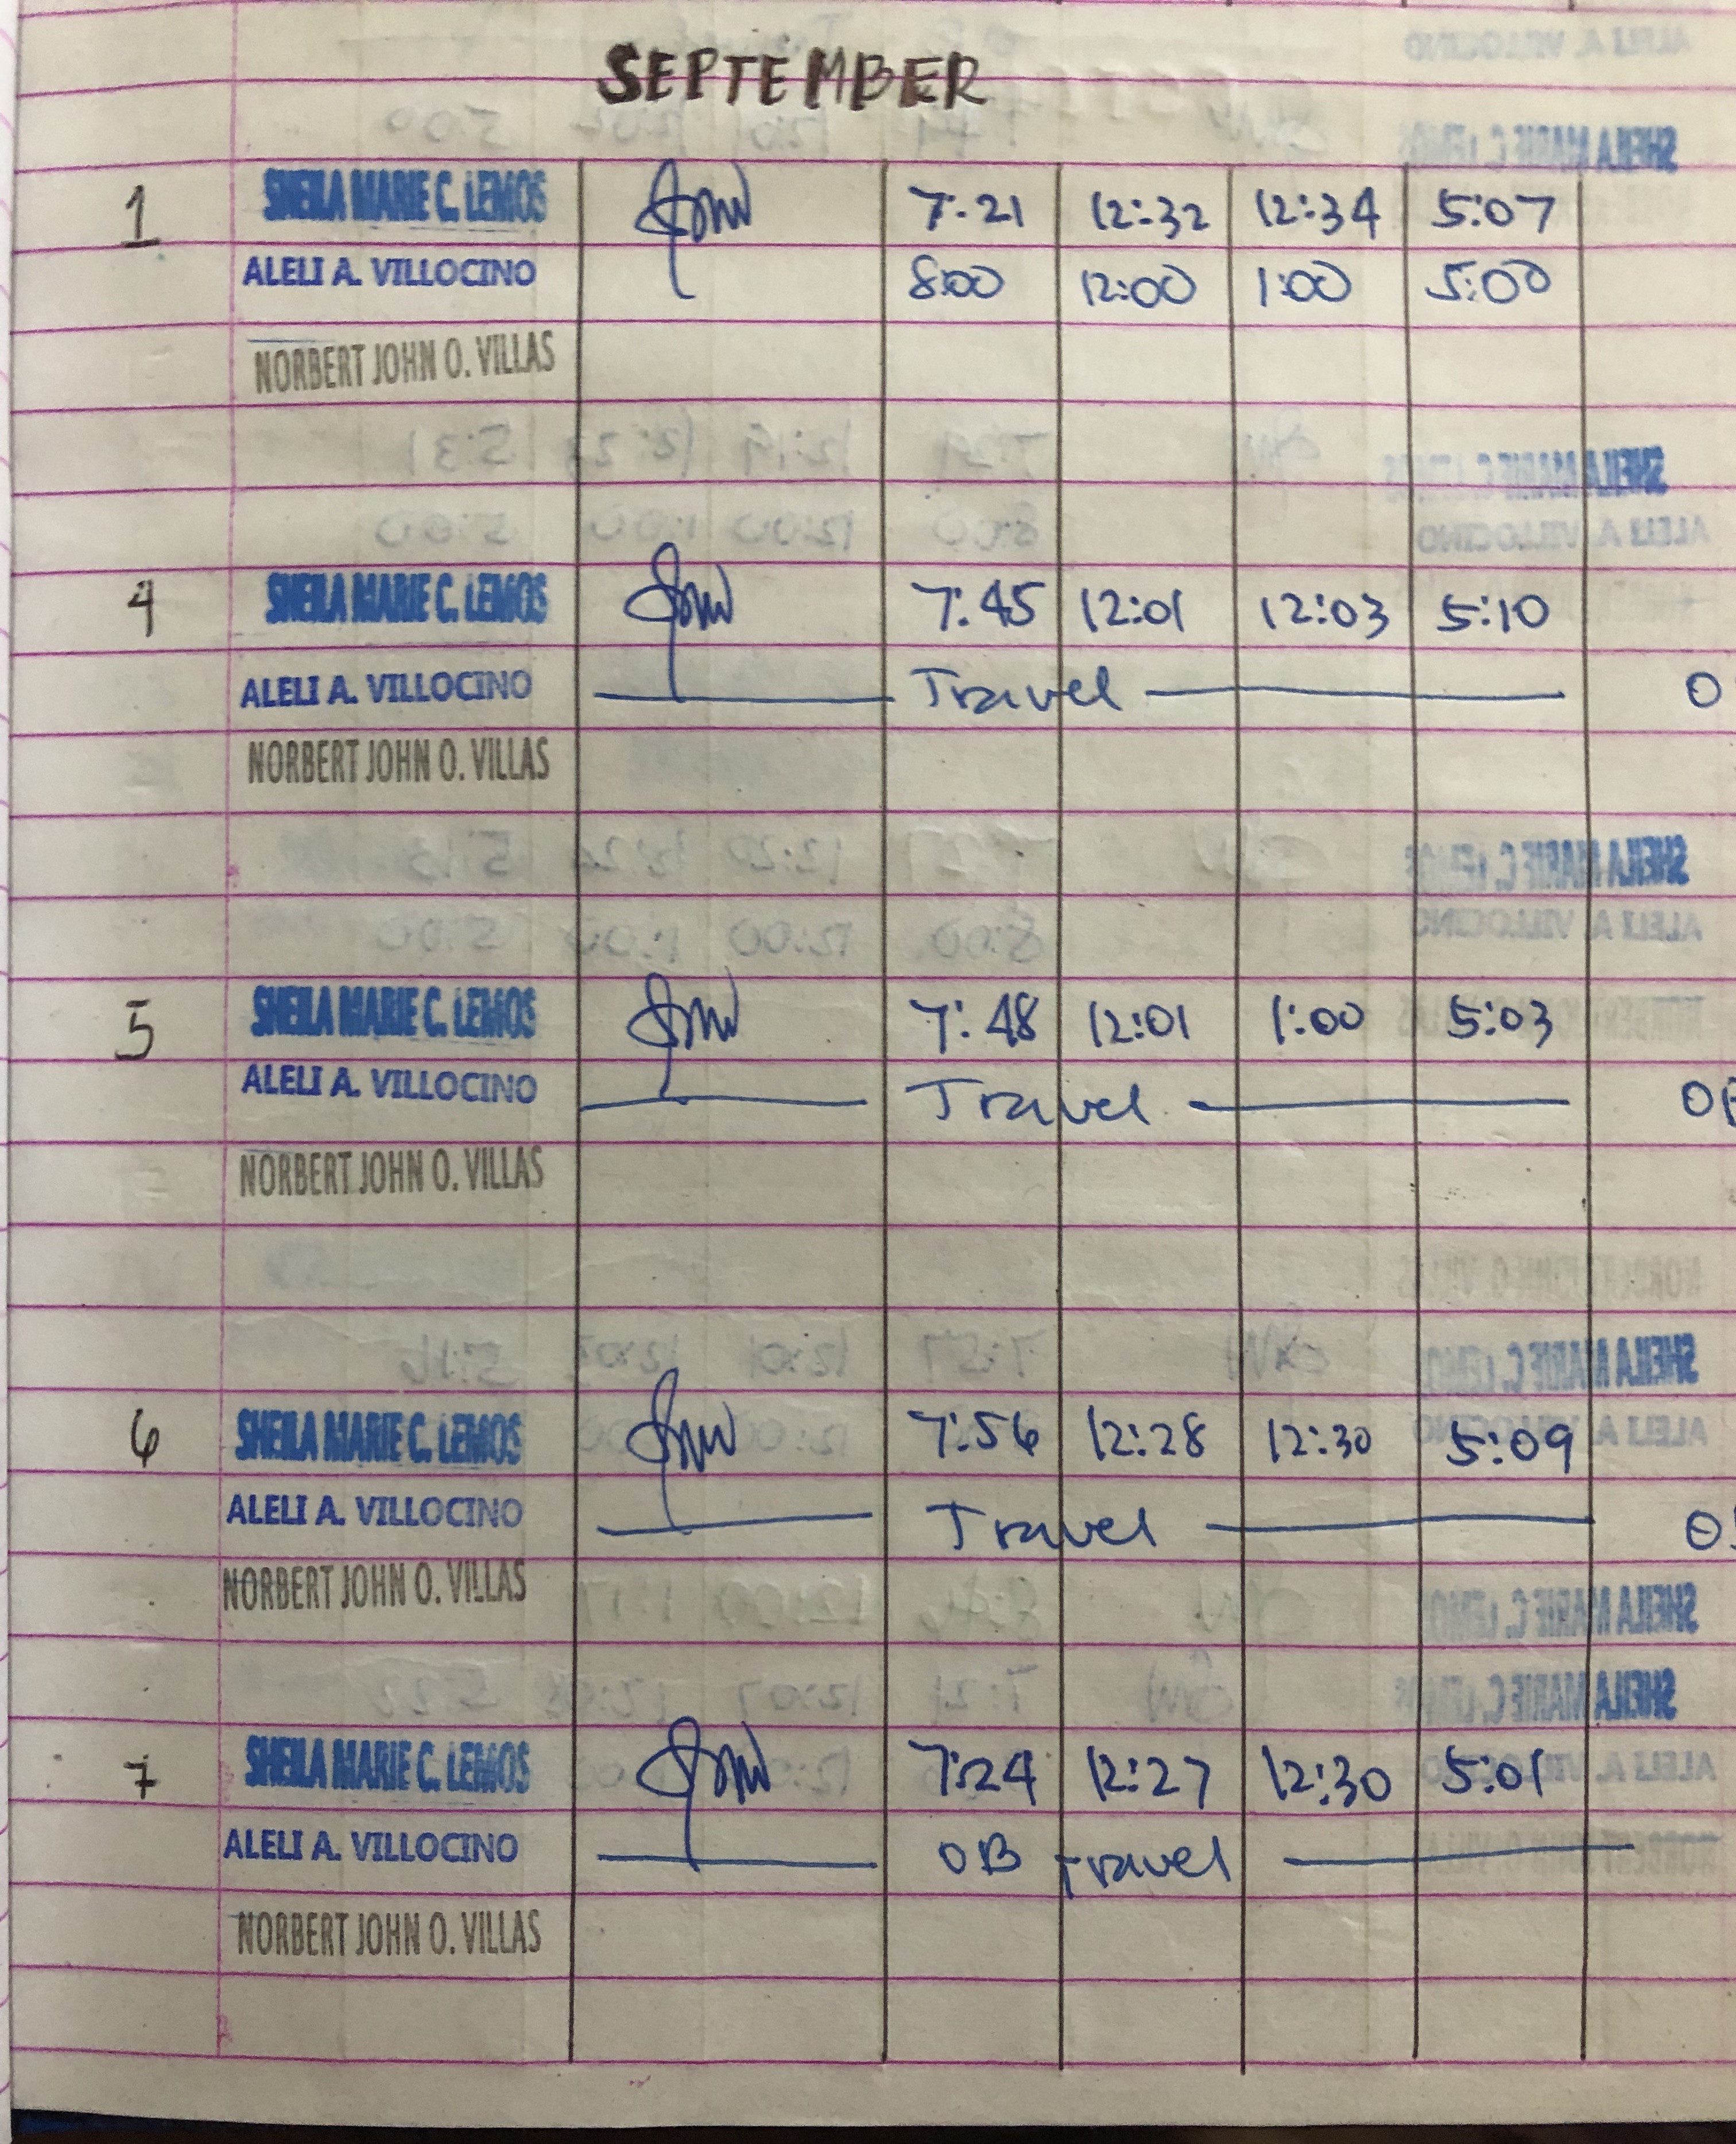 SEPTEMBER
1 SHEILA MARIE C. LEMOS 7:21 12:32 12:34 5:07
ALELI A. VILLOCINO 8:00 12:00 1:00 5:00
NORBERT JOHN O. VILLAS
4 SHEILA MARIE C. LEMOS 7:45 12:01 12:03 5:10
ALELI A. VILLOCINO Travel O
NORBERT JOHN O. VILLAS
5 SHEILA MARIE C. LEMOS 7:48 12:01 1:00 5:03
ALELI A. VILLOCINO Travel OB
NORBERT JOHN O. VILLAS
6 SHEILA MARIE C. LEMOS 7:56 12:28 12:30 5:09
ALELI A. VILLOCINO Travel O
NORBERT JOHN O. VILLAS
7 SHEILA MARIE C. LEMOS 7:24 12:27 12:30 5:01
ALELI A. VILLOCINO OB travel
NORBERT JOHN O. VILLAS